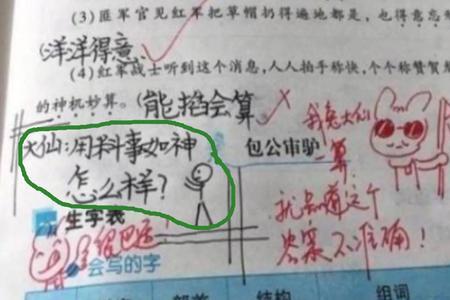 (3) 匪军官见红军把草帽扔得遍地都是,也得意忘
(洋洋得意)
(4) 红军战士听到这个消息,人人拍手称快,个个称赞贺
的神机妙算。(能掐会算)
大仙:用料事如神
怎么样?
我兔大仙
一算
就知道这个
答案不准确!
包公审驴
生字表
会写的字
部首
结构
组词